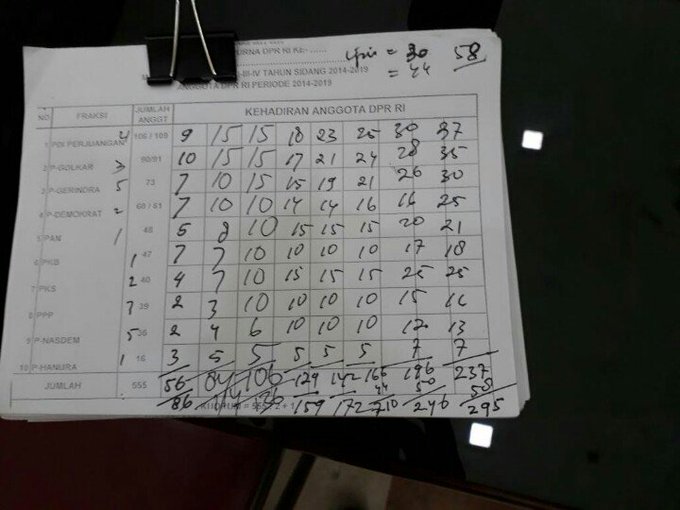 RNA DPR RI KE- ......
ijin = 30 58
= 44
-III-IV TAHUN SIDANG 2014-2019
ANGGOTA DPR RI PERIODE 2014-2019
NO FRAKSI JUMLAH ANGGT KEHADIRAN ANGGOTA DPR RI
1 PDI PERJUANGAN 4 106 / 109 9 15 15 18 23 25 30 37
2 P-GOLKAR 3 90/91 10 15 15 17 21 24 28 35
3 P-GERINDRA 5 73 7 10 15 15 19 21 26 30
4 P-DEMOKRAT 2 60 / 61 7 10 10 14 14 16 16 25
5 PAN 1 48 5 8 10 15 15 15 20 21
6 PKB 1 47 7 7 10 10 10 10 17 18
7 PKS 2 40 4 7 10 15 15 15 25 25
8 PPP 3 39 2 3 10 10 10 10 15 16
9 P-NASDEM 5 36 2 4 6 10 10 10 12 13
10 P-HANURA 1 16 3 5 5 5 5 5 7 7
JUMLAH 555 56 84 106 129 142 166 196 237
44 50 58
86 114 136 159 172 210 246 295